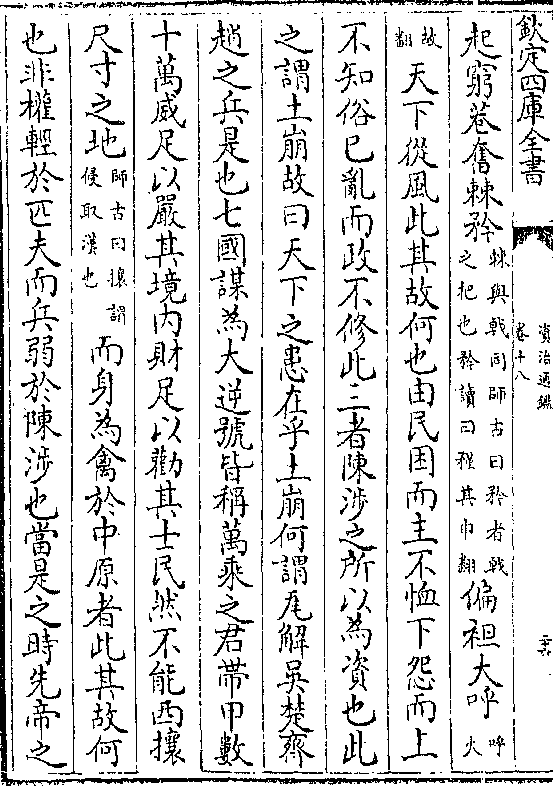 欽定四庫全書
資治通鑑
卷十八
起窮巷奮棘矜棘與戟同師古曰矜者戟
之把也矜讀曰穜其巾翻偏袒大呼呼火
故翻天下從風此其故何也由民困而主不恤下怨而上
不知俗已亂而政不修此三者陳涉之所以為資也此
之謂土崩故曰天下之患在乎土崩何謂瓦解吳楚齊
趙之兵是也七國謀為大逆號皆稱萬乘之君帶甲數
十萬威足以嚴其境內財足以勸其士民然不能西攘
尺寸之地師古曰攘謂侵取漢也而身為禽於中原者此其故何
也非權輕於匹夫而兵弱於陳涉也當是之時先帝之